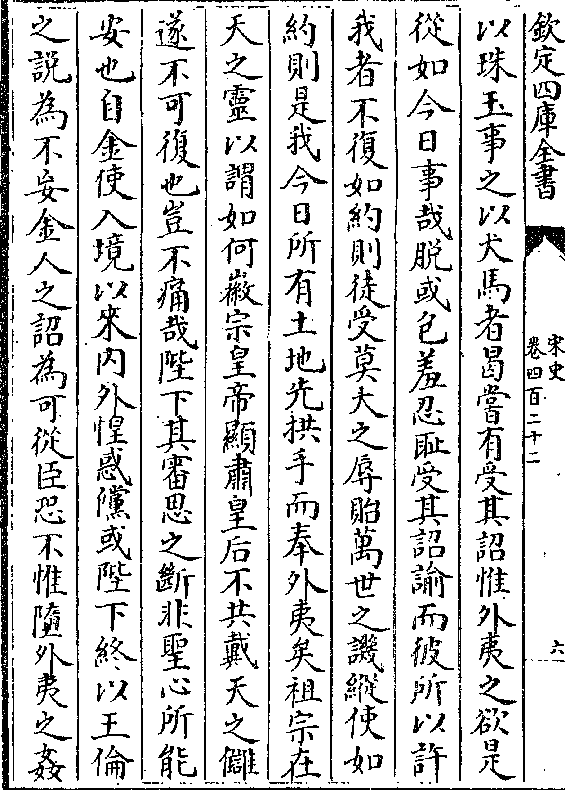 欽定四庫全書
宋史
卷四百二十二
六
以珠玉事之以犬馬者曷嘗有受其詔惟外夷之欲是
從如今日事哉脱或包羞忍恥受其詔諭而彼所以許
我者不復如約則徒受莫大之辱貽萬世之譏縱使如
約則是我今日所有土地先拱手而奉外夷矣祖宗在
天之靈以謂如何徽宗皇帝顯肅皇后不共戴天之讎
遂不可復也豈不痛哉陛下其審思之斷非聖心所能
安也自金使入境以來内外惶惑儻或陛下終以王倫
之説為不妄金人之詔為可從臣恐不惟墮外夷之姦